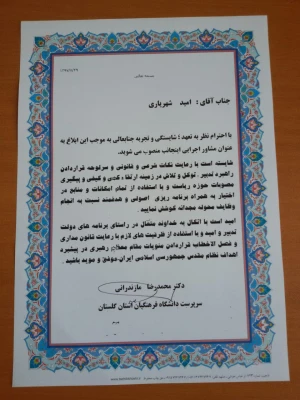 بسمه تعالی
جناب آقای : امید شهریاری
با احترام نظر به تعهد ؛ شایستگی و تجربه جنابعالی به موجب این ابلاغ به
عنوان مشاور اجرایی اینجانب منصوب می شوید.
شایسته است با رعایت نکات شرعی و قانونی و سرلوحه قراردادن
راهبرد تدبیر ، توکل و تلاش در زمینه ارتقاء کمی و کیفی و پیگیری
مصوبات حوزه ریاست و با استفاده از تمام امکانات و منابع در
اختیار به همراه برنامه ریزی اصولی و هدفمند نسبت به انجام
وظایف محوله مجدانه کوشش نمایید
امید است با اتکال به خداوند متعال در راستای برنامه های دولت
تدبیر و امید و با استفاده از ظرفیت های لازم با رعایت قانون مداری
و فصل الخطاب قراردادن منویات مقام معظم رهبری در پیشبرد
اهداف نظام مقدس جمهوری اسلامی ایران، موفق و موید باشید .
دکتر محمدرضا مازندرانی
سرپرست دانشگاه فرهنگیان استان گلستان